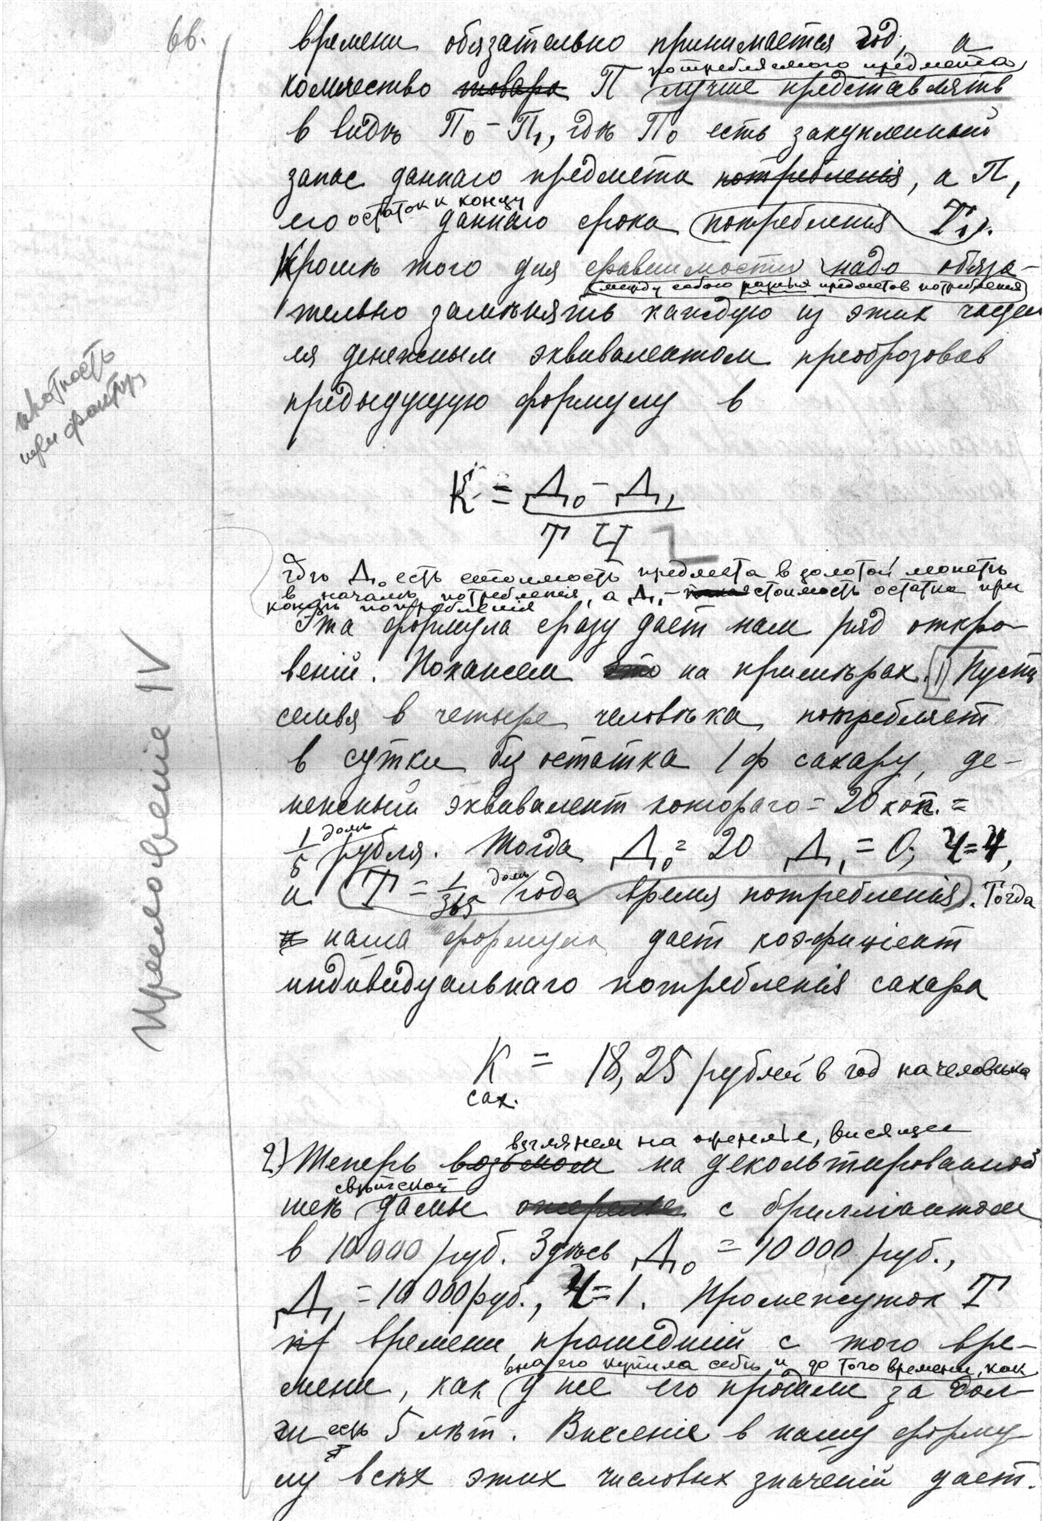 6в.
времени обязательно принимается год, а
потребляемого предмета
количество товара П лучше представлять
в видѣ П₀ – П₁, гдѣ П₀ есть закупленный
запас даннаго предмета потребленія, а П₁
его остаток к концу даннаго срока (потребленія Т).
Кромѣ того для сравнимости надо обяза-
(между собою разных предметов потребления)
тельно замѣнять каждую из этих
ля денежным эквивалентом преобразовав
предыдущую формулу в
K = Д₀ – Д₁
Т Ч
гдѣ Д₀ есть стоимость предмета в золотой монетѣ
в началѣ потребленія, а Д₁ – стоимость остатка при
концѣ потребленія
Эта формула сразу дает нам ряд откро-
веній. Покажем это на примѣрах. 1) Пусть
семья в четыре человѣка потребляет
в сутки без остатка 1 ф сахару, де-
нежный эквивалент котораго = 20 коп. =
1/5 долѣ рубля. Тогда Д₀ = 20 Д₁ = 0; Ч=4,
и (Т = 1/365 долѣ года время потребленія). Тогда
наша формула дает коэфиціент
индивидуальнаго потребленія сахара
K сах. = 18,25 рублей в год на человѣка
взглянем на ожерелье, висящее
2) Теперь возьмом на декольтированной
свѣтской
шеѣ дамы ожерелье с брилліантом
в 10000 руб. Здѣсь Д₀ = 10000 руб.,
Д₁ = 10000 руб., Ч=1. Промежуток Т
времени, прошедший с того вре-
она его купила себѣ, и до того времени, как
мени, как у нее его продали за дол-
ги есть 5 лѣт. Внесеніе в нашу форму-
лу всѣх этих числовых значеній дает.
Приложеніе IV